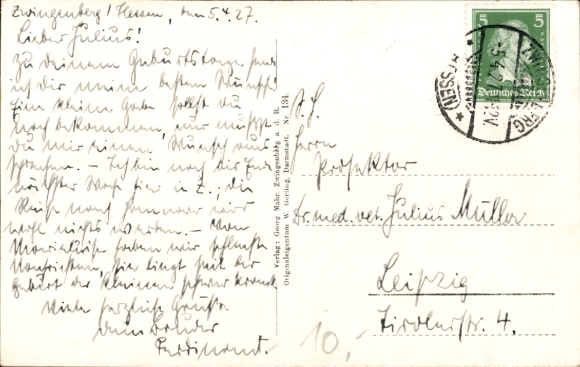 Zwingenberg / Hessen, den 5.4.27.
Lieber Julius!
Zu deinem Geburtstage sende
ich dir meine besten Wünsche!
Eine kleine Gabe sollst du
noch bekommen, nur mußt
du mir einen Wunsch
Ich bin noch bis Ende
nächster Woche hier in Z.; die
Reise nach Hannover wird
wohl nichts werden. - Von
haben wir schlechte
Nachrichten, sie liegt seit der
Geburt der Kleinen schwer krank.
Viele herzliche Grüße
dein Bruder
Ferdinand.
Verlag: Georg Mahr, Zwingenberg a. d. B.
Originaleigentum W. Gerling, Darmstadt, Nr. 134.
5 5
Deutsches Reich
HESSEN
Herrn
Prosektor
Dr. med. vet. Julius Müller
Leipzig
Tirolerstr. 4.
10,-